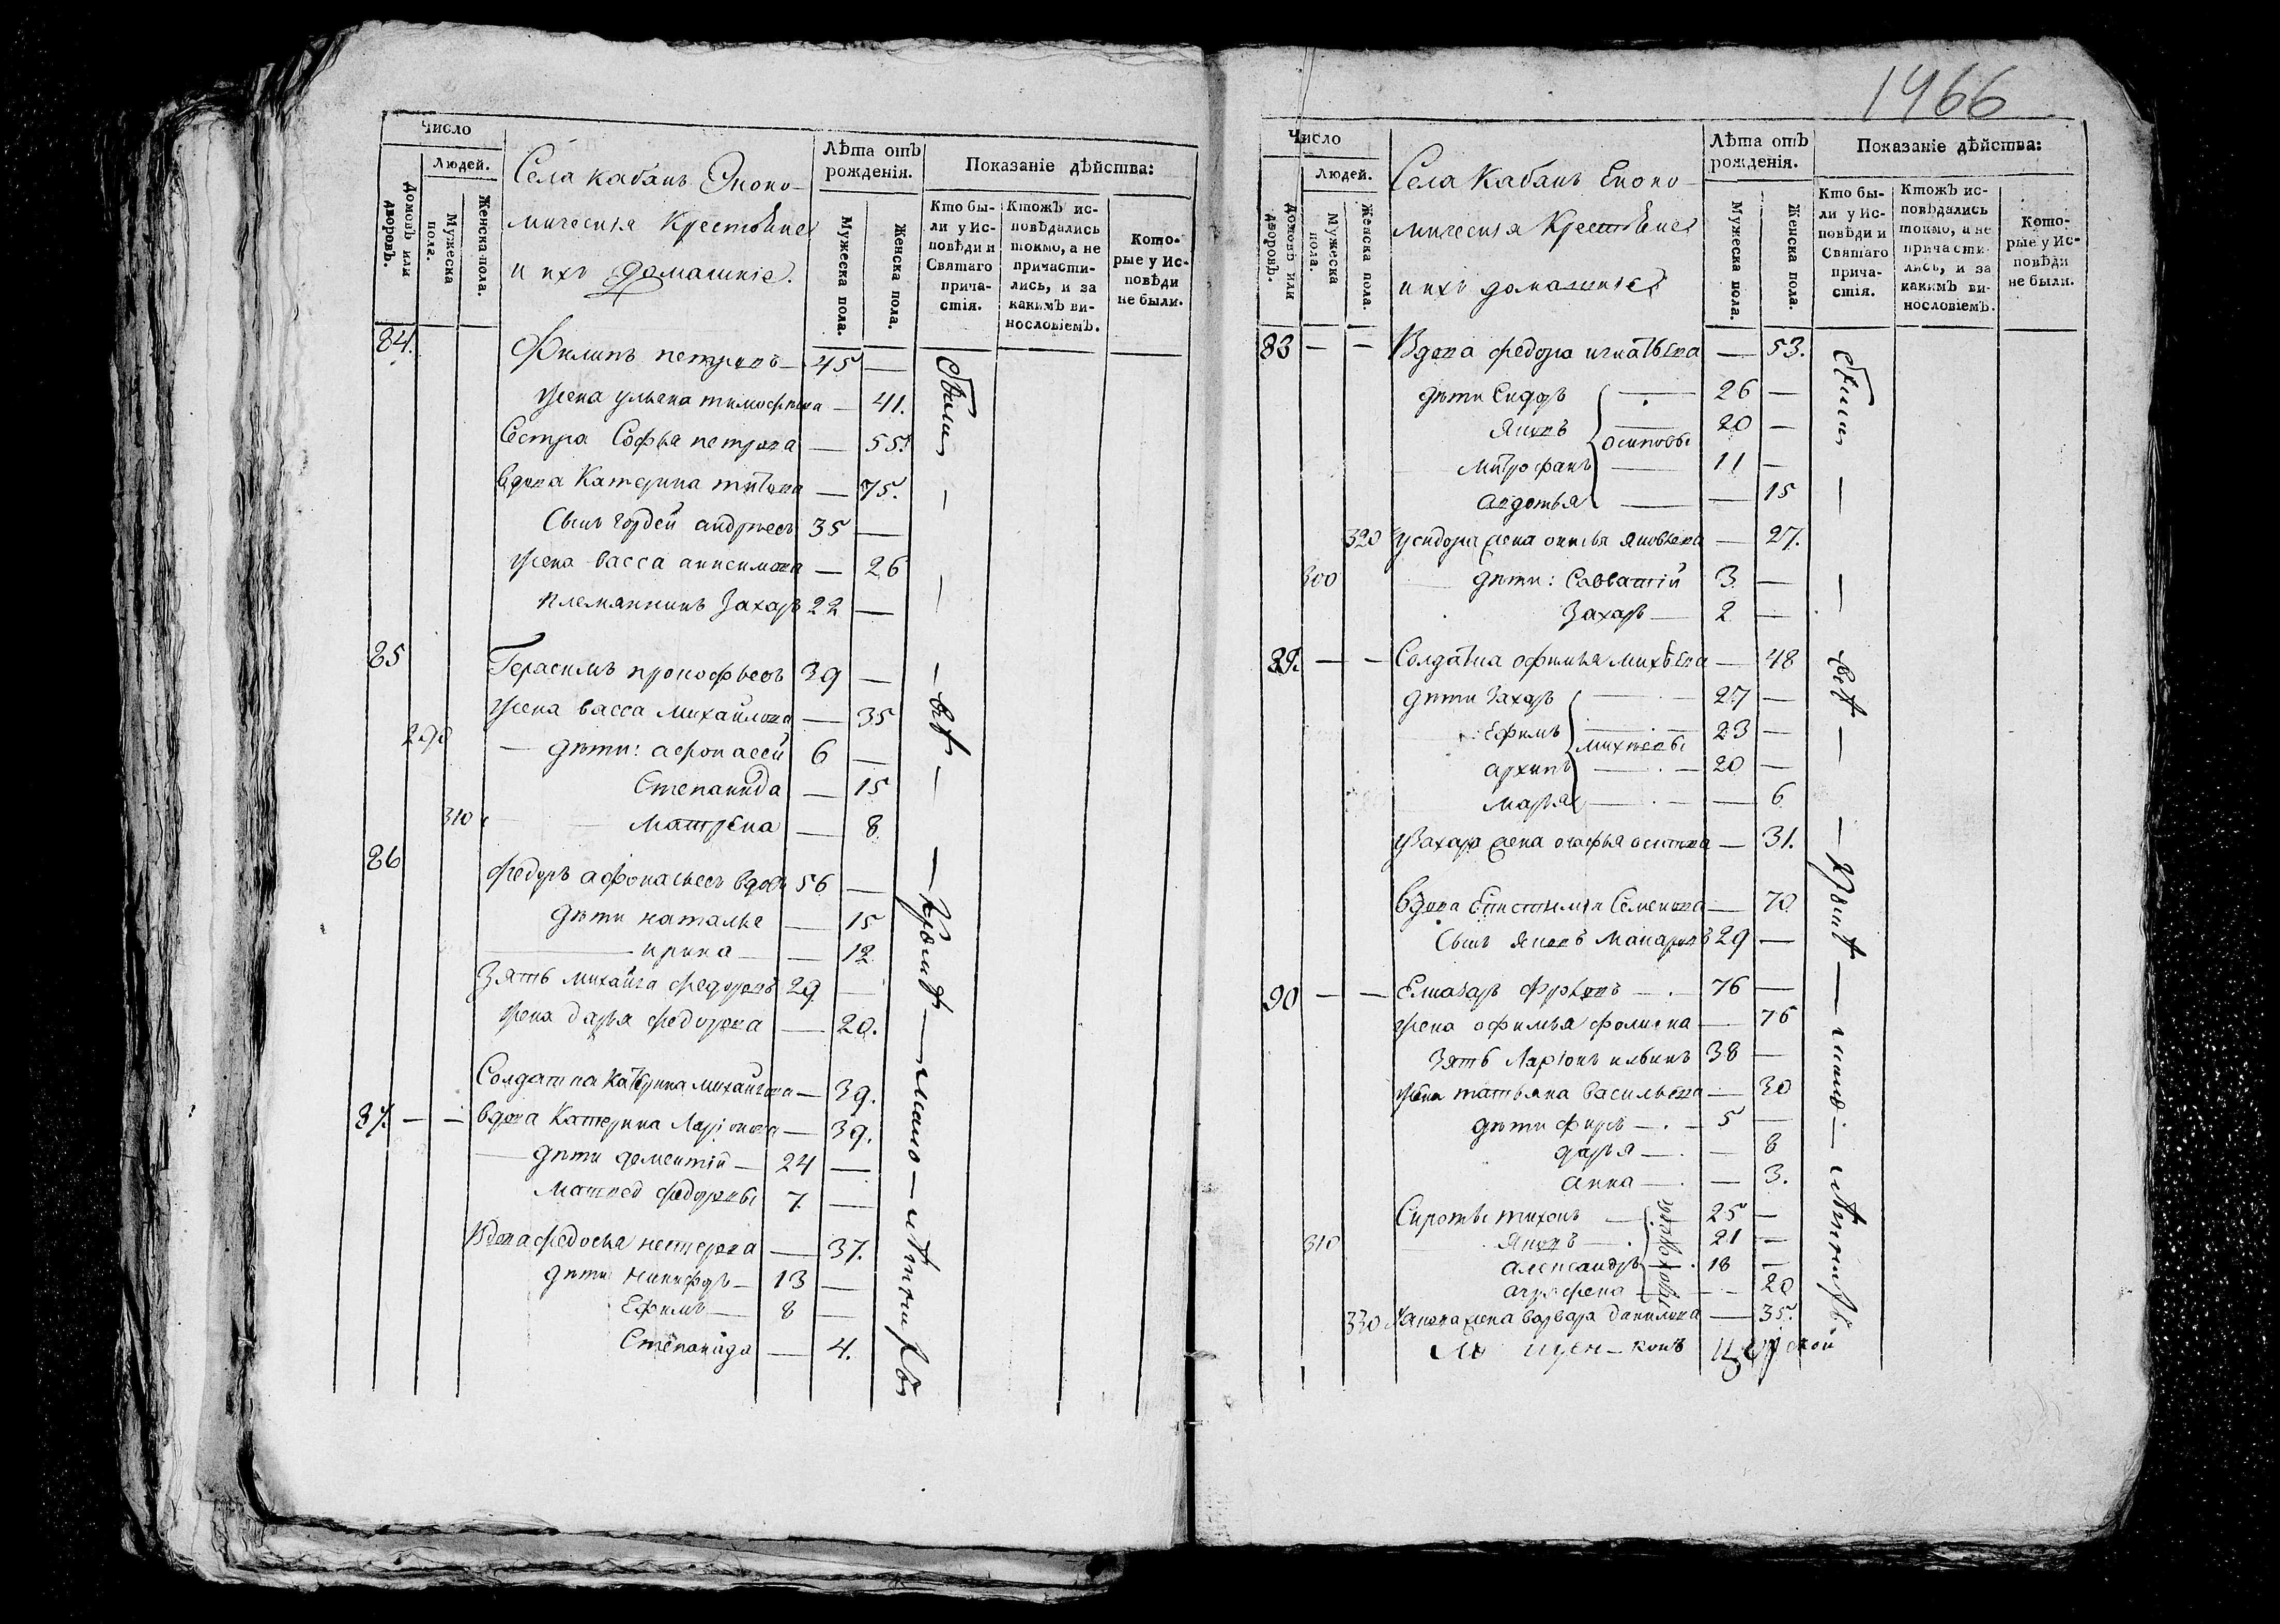 Число
Людей.
Домовъ или дворовъ.
Мужеска пола.
Женска пола.
Села Кабанъ Эконо-
мическия Крестьяне
и ихъ домашнiе.
Лѣта отъ рожденiя.
Мужеска пола.
Женска пола.
Показанiе дѣйства:
Кто бы-
ли у Ис-
повѣди и
Святаго
прича-
стiя.
Ктожъ ис-
повѣдались
токмо, а не
причасти-
лись, и за
какимъ ви-
нословiемъ.
Кото-
рые у Ис-
повѣди
не были.
84. Филипъ петровъ — 45 —
жена ульяна тимофѣева — 41.
Сестра Софья петрова — 55.
вдова Катерина титова — 75.
Сынъ Гордей андрѣевъ 35 —
жена васса анисимова — 26
племянникъ Захаръ 22 —
85 Герасимъ прокофьевъ 39 —
жена васса Михайлова — 35
290 — дѣти: афонасей 6 —
Степанида — 15
310 Матрена — 8.
86 Федоръ афонасьевъ вдовъ 56 —
дѣти наталья — 15
ирина — 12
Зять михайла федоровъ 29 —
жена дарья федорова — 20.
Солдатка Катерина михайлова — 39.
87. — — вдова Катерина Ларiонова — 39.
дѣти дементiй — 24 —
Матвей федоровы 7. —
Вдова федосья нестерова — 37.
дѣти Никифоръ — 13 —
Ефимъ — 8 —
Степанида — 4.
были
—
—
— всѣ —
— Кромѣ — мало — лѣтнихъ
1466
Число
Людей.
Домовъ или дворовъ.
Мужеска пола.
Женска пола.
Села Кабанъ Еконо-
мическия Крестьяне
и ихъ домашнiе
Лѣта отъ рожденiя.
Мужеска пола.
Женска пола.
Показанiе дѣйства:
Кто бы-
ли у Ис-
повѣди и
Святаго
прича-
стiя.
Ктожъ ис-
повѣдались
токмо, а не
причасти
лись, и за
какимъ ви-
нословiемъ.
Кото-
рые у Ис-
повѣди
не были.
83 — — Вдова федора игнатьева — 53.
дѣти Сидоръ — 26 —
Яковъ 20 —
осиповы
Митрофанъ — 11 —
авдотья — — 15
320 У сидора жена Яковлева — 27.
300 дѣти: Савватiй 3. —
Захаръ — 2 —
89. — — Солдатка офимья михѣева — 48
дѣти Захаръ — 27 —
Ефимъ — 23 —
михѣевы
архипъ — 20 —
марья — — 6
У Захара жена осипова — 31.
вдова Епистимiя Семенова — 70
Сынъ Яковъ Макаровъ 29 —
90 — — Елиазаръ — 76 —
жена офимья — 76
Зять Ларiонъ ильинъ 38 —
жена татьяна васильева — 30
дѣти фирсъ — 5 —
дарья — — 8
анна — — 3.
Сироты тихонъ — 25 —
310 Яковъ — 21 —
александръ — 18 —
аграфена — — 20
330 У Якова жена варвара данилова — 35.
были
—
—
всѣ —
— Кромѣ — мало — лѣтнихъ